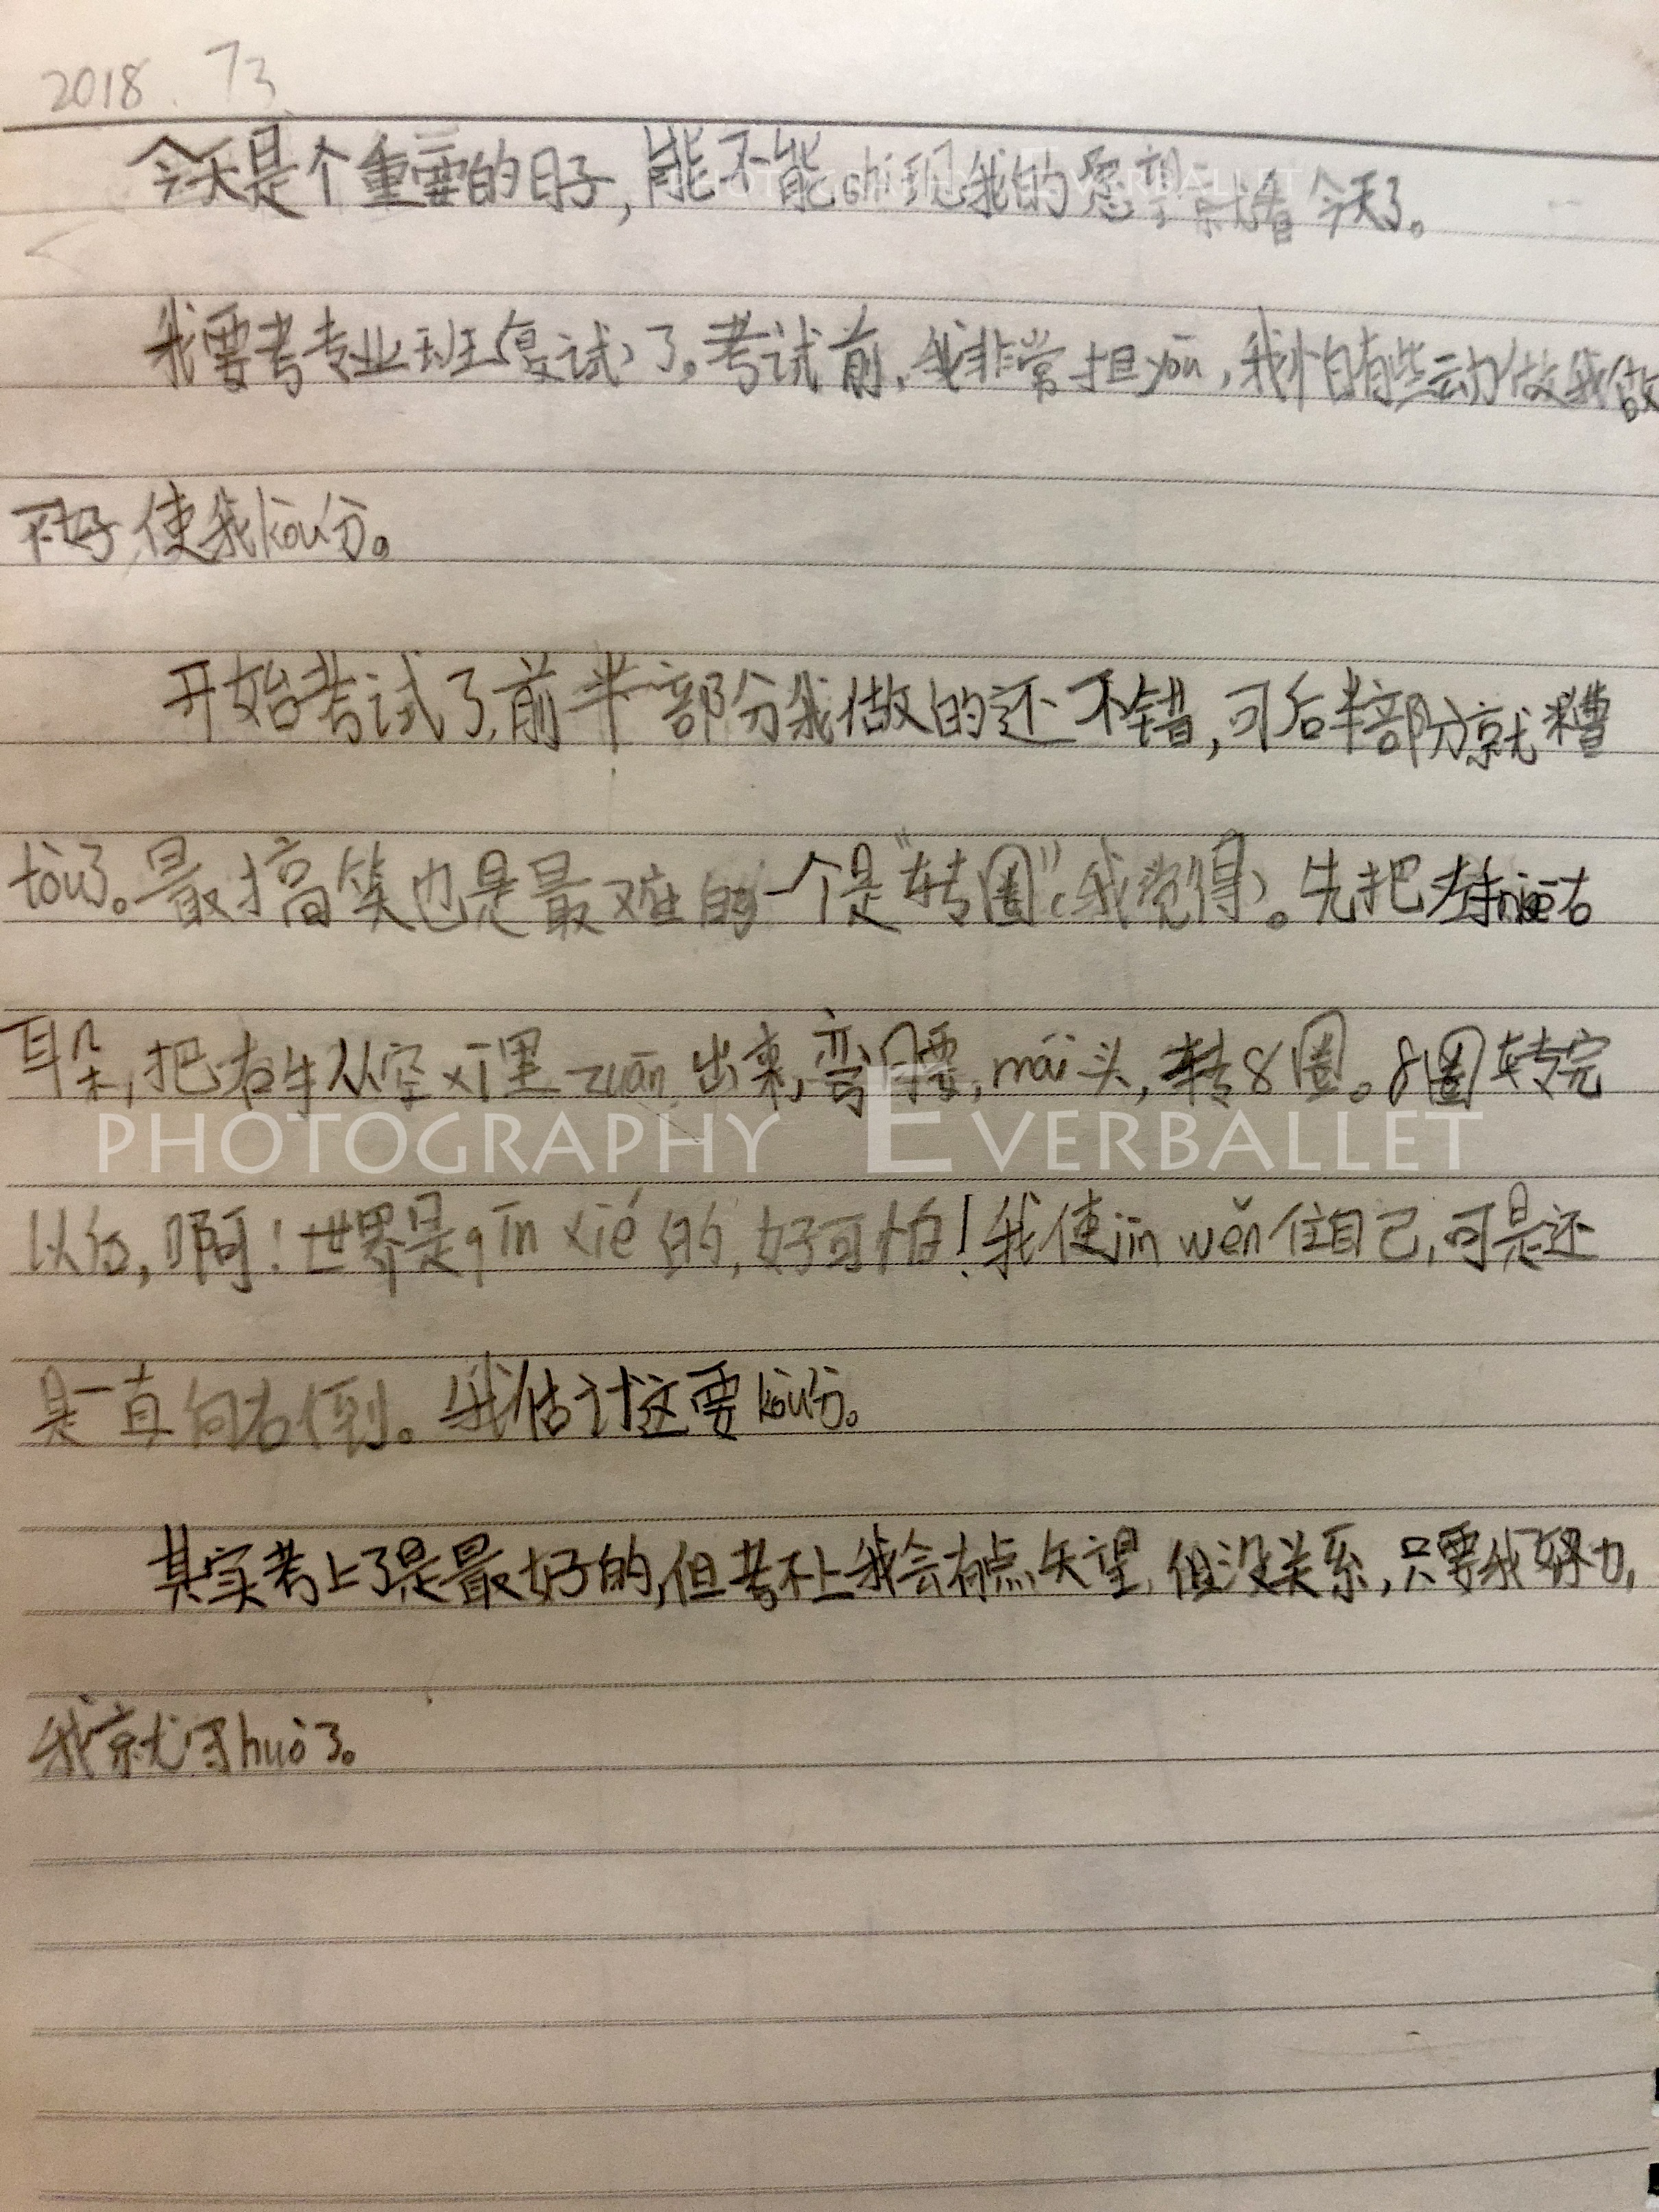 2018.7.3
今天是个重要的日子，能不能shi现我的愿望就看今天了。
我要考专业班（复试）了。考试前，我非常担yōu，我怕有些动做我做
不好，使我kòu分。
开始考试了，前半部分我做的还不错，可后半部分就糟
tòu了。最搞笑也是最难的一个是“转圈”（我觉得）。先把左手niē右
耳朵，把右手从空xì里zuān出来，弯腰，mái头，转8圈。8圈转完
以后，啊！世界是qīn xié的，好可怕！我使jìn wěn住自己，可是还
是一直向右倒。我估计这要kòu分。
其实考上了是最好的，但考不上我会有点失望，但没关系，只要我努力，
我就收huò了。
PHOTOGRAPHY EVERBALLET